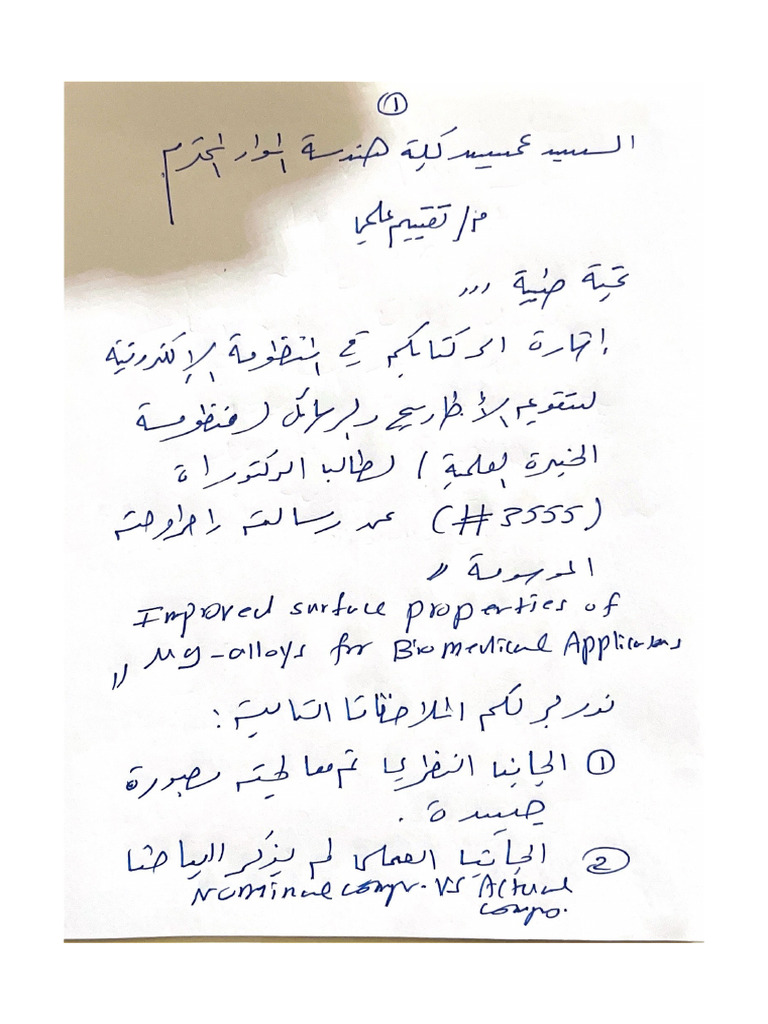 ①
السيد عميد كلية هندسة المواد المحترم
م/ تقييم علمي
تحية طيبة ,,,
إشارة الى كتابكم في المنظومة الإلكترونية
لتقويم الأطاريح والرسائل (منظومة
الخبرة العلمية) لطالب الدكتوراة
(#3555) عن رسالته / اطروحته
الموسومة "
Improved surface properties of
Mg-alloys for Biomedical Applications "
ندرج لكم الملاحظات التالية :
① الجانب النظري تم معالجته بصورة
جيدة .
② الجانب العملي لم يذكر الباحث
Nominal compo. VS Actual
compo.